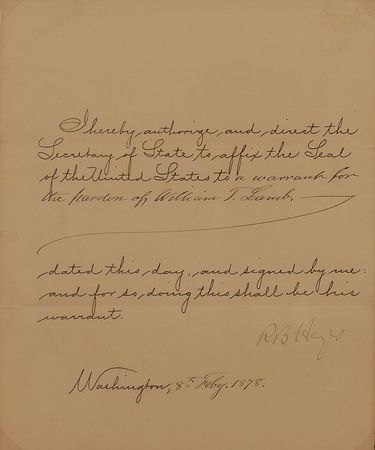 I hereby authorize and direct the
Secretary of State to affix the Seal
of the United States to a warrant for
the pardon of William T. Lamb,
dated this day, and signed by me:
and for so doing this shall be his
warrant.
R.B. Hayes
Washington, 8th Feby. 1878.